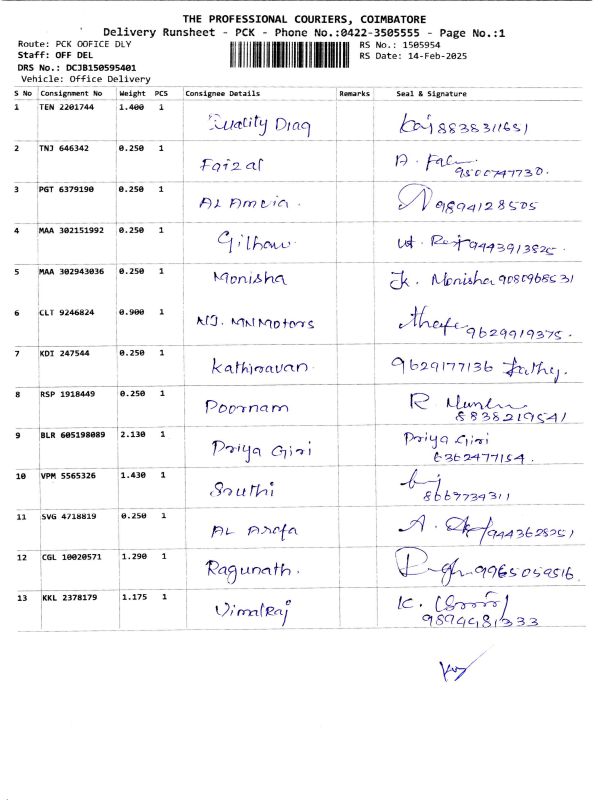 THE PROFESSIONAL COURIERS, COIMBATORE
Delivery Runsheet - PCK - Phone No.:0422-3505555 - Page No.:1
Route: PCK OOFICE DLY RS No.: 1505954
Staff: OFF DEL RS Date: 14-Feb-2025
DRS No.: DCJB150595401
Vehicle: Office Delivery
S No Consignment No Weight PCS Consignee Details Remarks Seal & Signature
1 TEN 2201744 1.400 1 Quality Diag 8838311651
2 TNJ 646342 0.250 1 Faizal A. 9500747730.
3 PGT 6379190 0.250 1 AL Ameia. 9894128505
4 MAA 302151992 0.250 1 9443913825.
5 MAA 302943036 0.250 1 Monisha K. Monisha 9080968531
6 CLT 9246824 0.900 1 MN Motors 9629919375.
7 KDI 247544 0.250 1 Kathiravan 9629177136
8 RSP 1918449 0.250 1 Poornam R. 8838219541
9 BLR 605198089 2.130 1 Priya Giri Priya Giri
6362477154.
10 VPM 5565326 1.430 1 Sruthi 8667734311
11 SVG 4718819 0.250 1 AL Arofa A. 9443628251
12 CGL 10020571 1.290 1 Ragunath. 9965059516.
13 KKL 2378179 1.175 1 Vimalraj K.